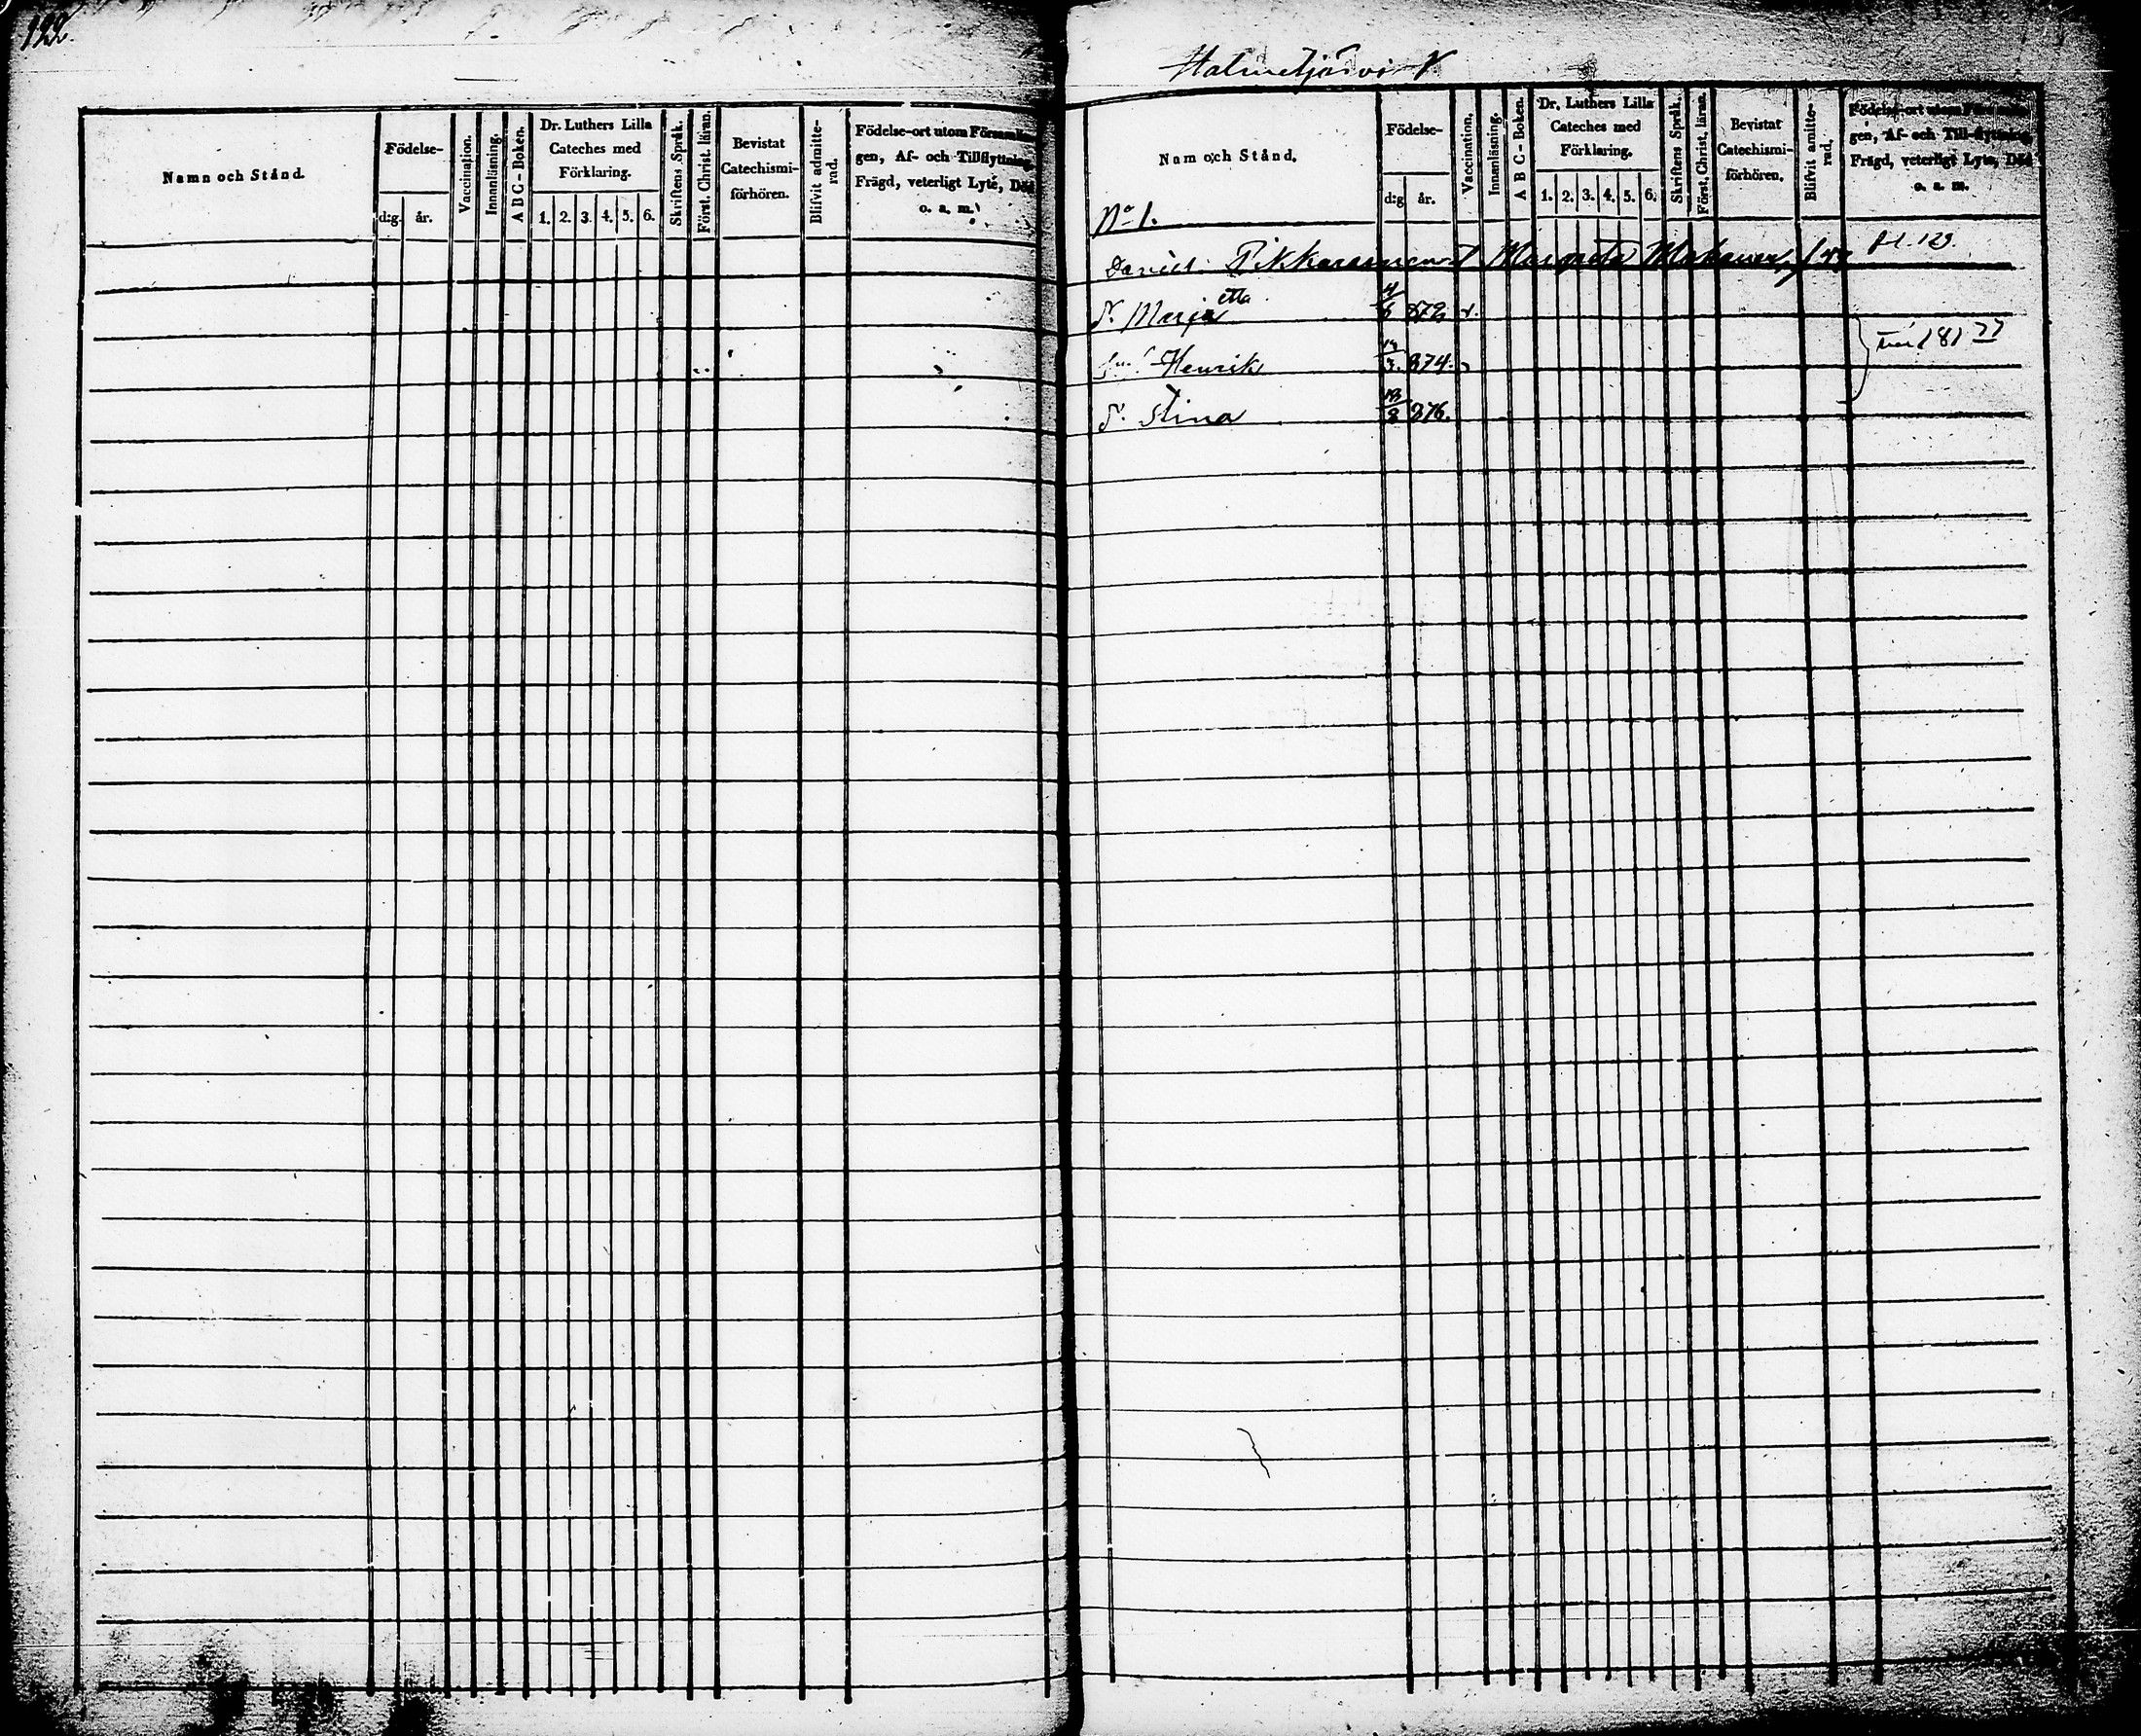 122.
Namn och Stånd.
Födelse-
d:g. år.
Vaccination.
Innanläsning.
A B C - Boken.
Dr. Luthers Lilla
Cateches med
Förklaring.
1. 2. 3. 4. 5. 6.
Skriftens Språk.
Först. Christ. läran.
Bevistat
Catechismi-
förhören.
Blifvit admitte-
rad.
Födelse-ort utom Församlin-
gen, Af- och Tillflyttning,
Frägd, veterligt Lyte, Död
o. a. m.
Halmetjärvi
Nam och Stånd.
Födelse-
d:g år.
Vaccination.
Innanläsning.
A B C - Boken.
Dr. Luthers Lilla
Cateches med
Förklaring.
1. 2. 3. 4. 5. 6.
Skriftens Språk.
Först. Christ. läran.
Bevistat
Catechismi-
förhören.
Blifvit amitte-
rad,
Födelse-ort utom Försam-
gen, Af- och Till-flyttning,
Frägd, veterligt Lyte, Död
o. a. m.
No 1.
David Pikkarainen Margreta p.l. 123.
D. Marja etta 872
Henrik 874.
D. Stina 18/8 876.